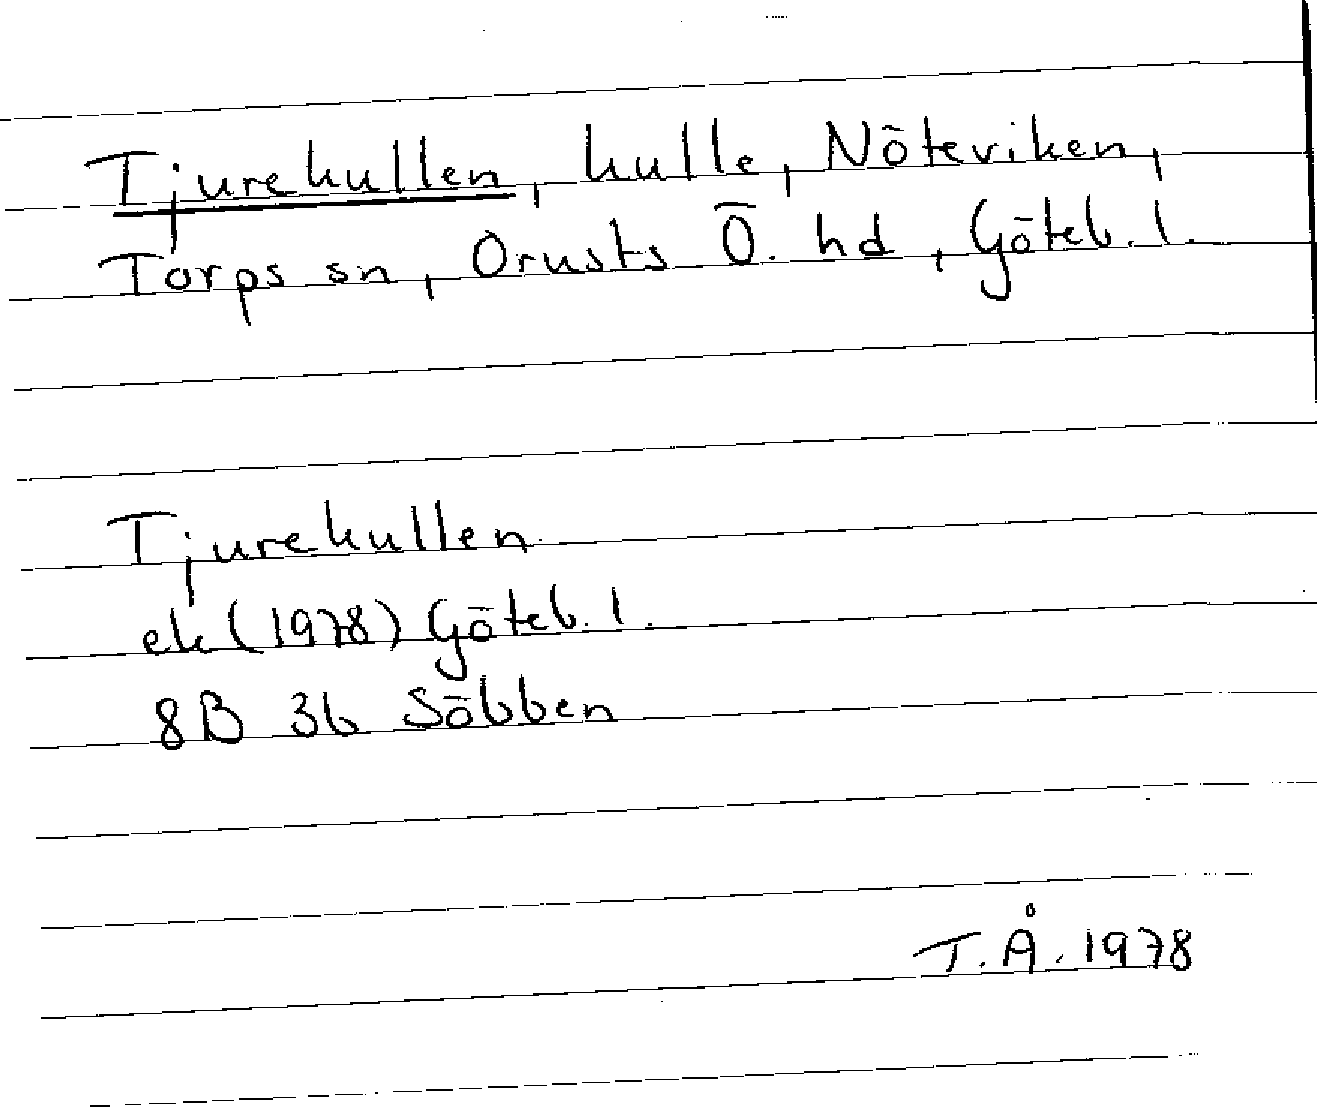 Tjurekullen, kulle, Nöteviken,
Torps sn, Orusts Ö. hd, Göteb. l.
Tjurekullen
ek (1978) Göteb. l.
8B 3b Söbben
T. Å. 1978